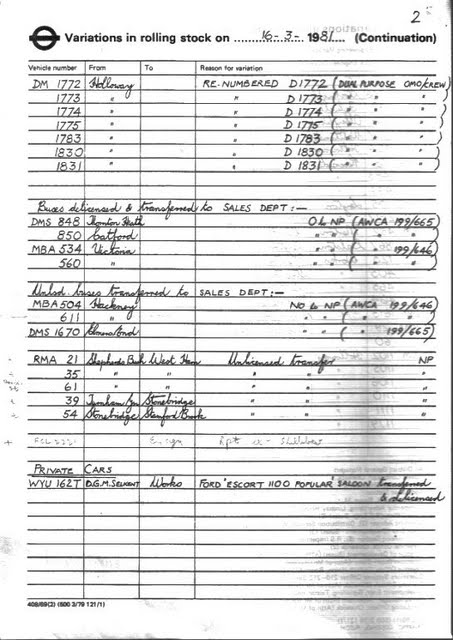 2
Variations in rolling stock on 16-3-1981 (Continuation)
Vehicle number From To Reason for variation
DM 1772 Holloway RE-NUMBERED D1772 (DUAL PURPOSE OMO/CREW)
1773 " " D 1773 ( " " " )
1774 " " D 1774 ( " " " )
1775 " " D 1775 ( " " " )
1783 " " D 1783 ( " " " )
1830 " " D 1830 ( " " " )
1831 " " D 1831 ( " " " )
Buses delicensed & transferred to SALES DEPT:-
DMS 848 Thornton Heath O to NP (AWCA 199/665)
850 Catford " " ( " " )
MBA 534 Victoria " " ( " 199/646)
560 " " " ( " " )
Unlsd buses transferred to SALES DEPT:-
MBA 504 Hackney NO to NP (AWCA 199/646)
611 " " " ( " " )
DMS 1670 Elmers End " ( " 199/665)
RMA 21 Shepherds Bush West Ham Unlicensed transfer NP
35 " " " " "
61 " " " " "
39 Turnham Grn Stonebridge " " "
54 Stonebridge Stamford Brook " " "
PRIVATE CARS
WYU 162T D.G.M. Selkent Works FORD ESCORT 1100 POPULAR SALOON transferred
& delicensed
408/89(2) (500 3/79 121/1)